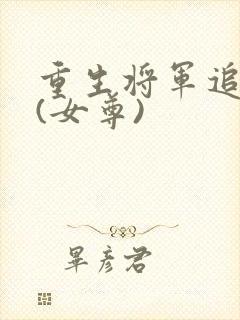 重生将军追
(女尊)
畢彦君